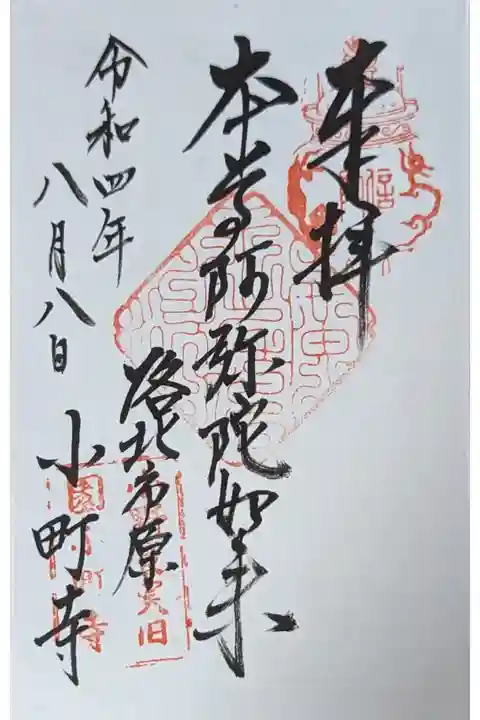 奉拝
本尊阿弥陀如来
洛北市原
小町寺
令和四年
八月八日
小町寺
旧